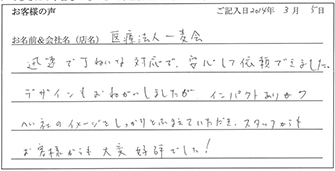 お客様の声 ご記入日2014年 3月 5日
お名前&会社名(店名) 医療法人一麦会
迅速で丁ねいな対応で、安心して依頼できました。
デザインもおねがいしましたが インパクトありかつ
へい社のイメージをしっかりとふまえていただき、スタッフからも
お客様からも大変好評でした!